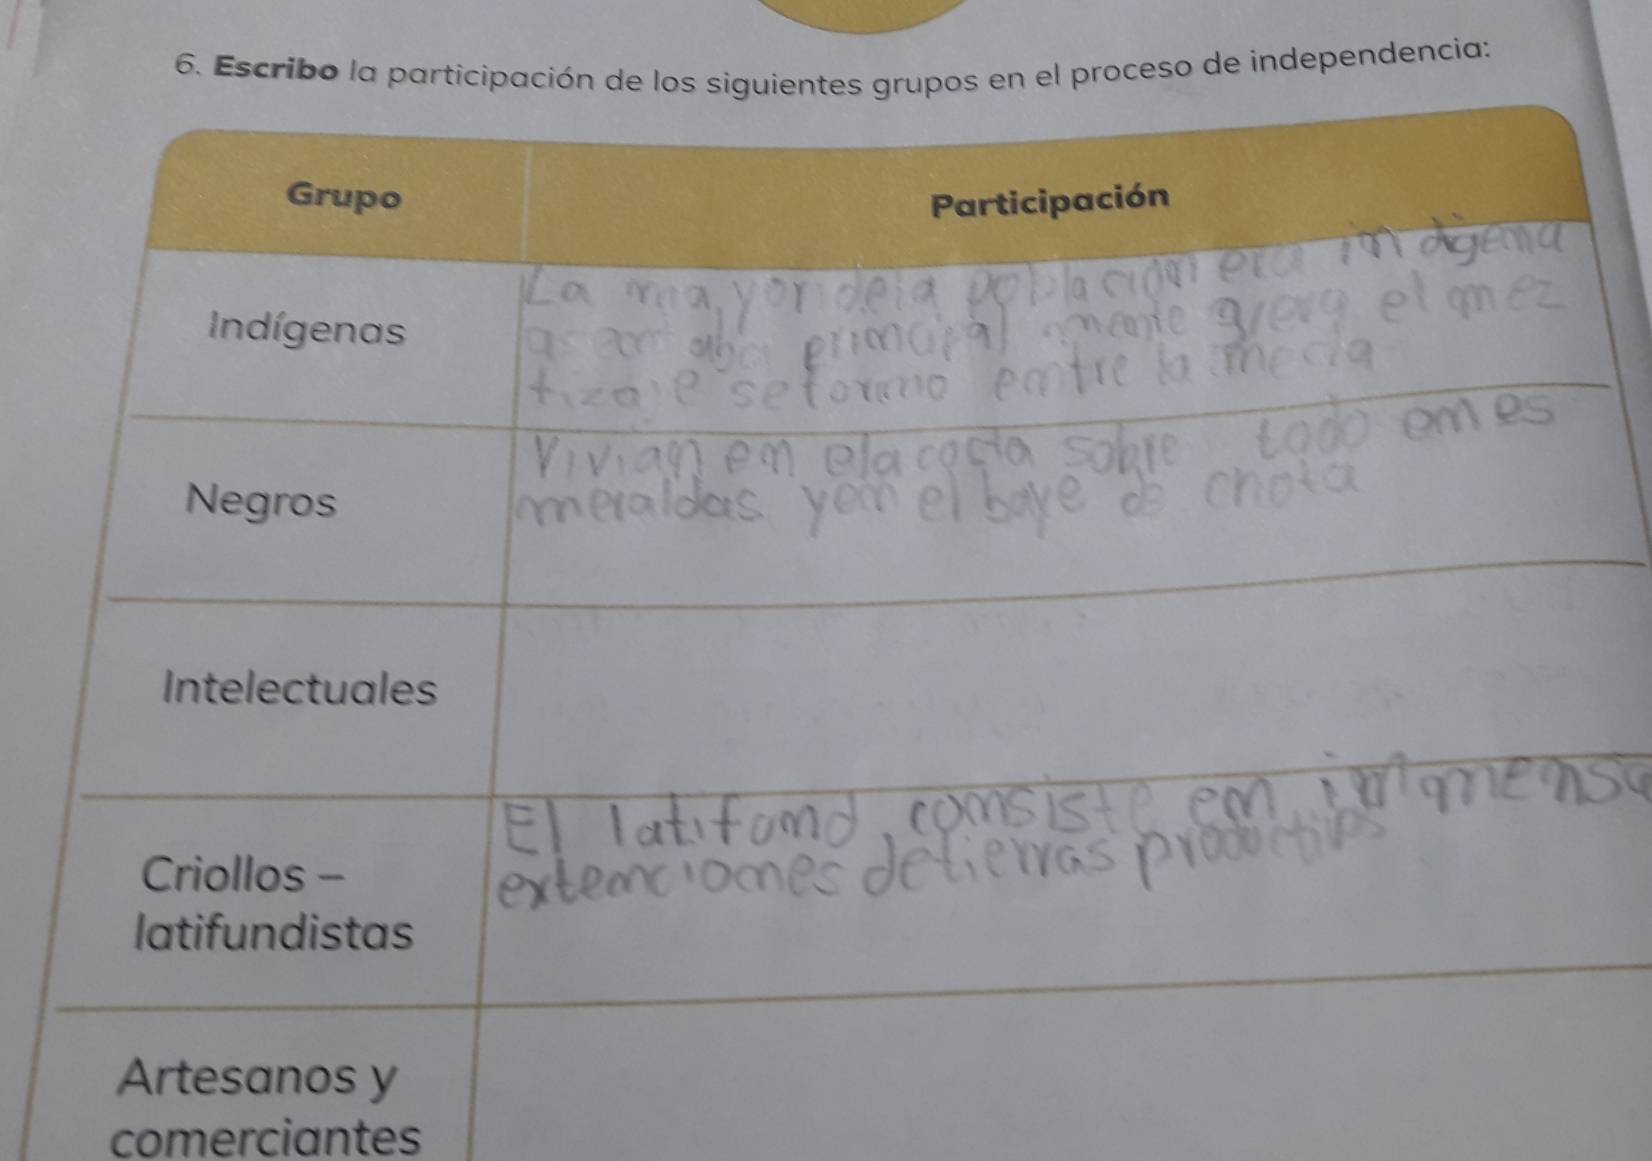 6. Escribo la participación de los siguientes grupos en el proceso de independencia:
Grupo
Participación
Indígenas
La mayor dela poblacion era indigena
principal mente el mez
tizaje se formo entre la
Negros
Vivian en ela costa sobre todo en es
meraldas yen el baye de chota
Intelectuales
Criollos –
latifundistas
El latifond consiste en inmensa
extenciones detierras
Artesanos y
comerciantes